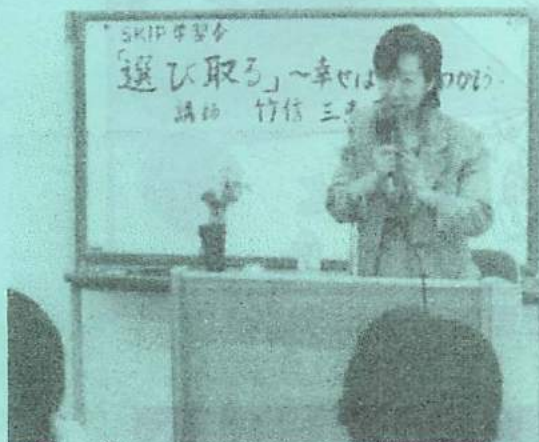 SKIP学習会
「選び取る」～幸せは
講師 竹信 三